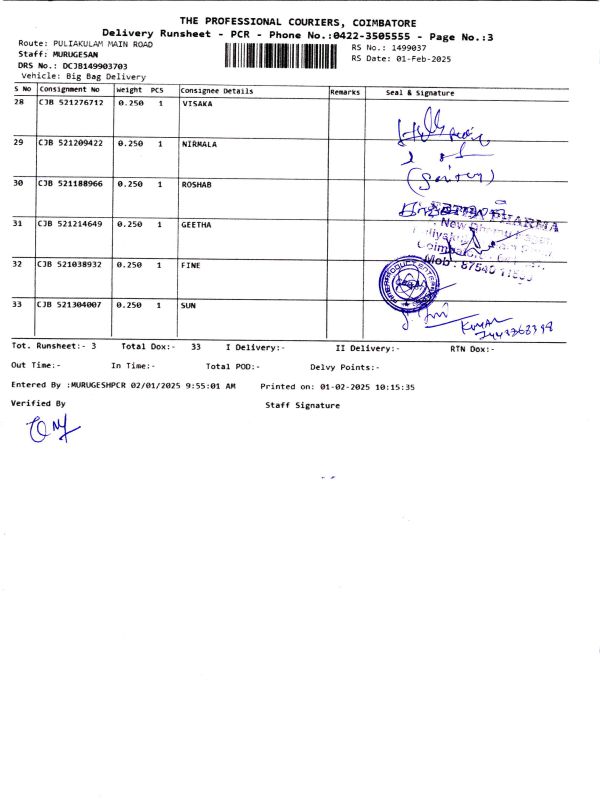 THE PROFESSIONAL COURIERS, COIMBATORE
Delivery Runsheet - PCR - Phone No.:0422-3505555 - Page No.:3
Route: PULIAKULAM MAIN ROAD RS No.: 1499037
Staff: MURUGESAN RS Date: 01-Feb-2025
DRS No.: DCJB149903703
Vehicle: Big Bag Delivery
S No Consignment No Weight PCS Consignee Details Remarks Seal & Signature
28 CJB 521276712 0.250 1 VISAKA
29 CJB 521209422 0.250 1 NIRMALA
30 CJB 521188966 0.250 1 ROSHAB
31 CJB 521214649 0.250 1 GEETHA
PHARMA
New
Mob : 87540
32 CJB 521038932 0.250 1 FINE
33 CJB 521304007 0.250 1 SUN
Kumar
Tot. Runsheet:- 3 Total Dox:- 33 I Delivery:- II Delivery:- RTN Dox:-
Out Time:- In Time:- Total POD:- Delvy Points:-
Entered By :MURUGESHPCR 02/01/2025 9:55:01 AM Printed on: 01-02-2025 10:15:35
Verified By Staff Signature